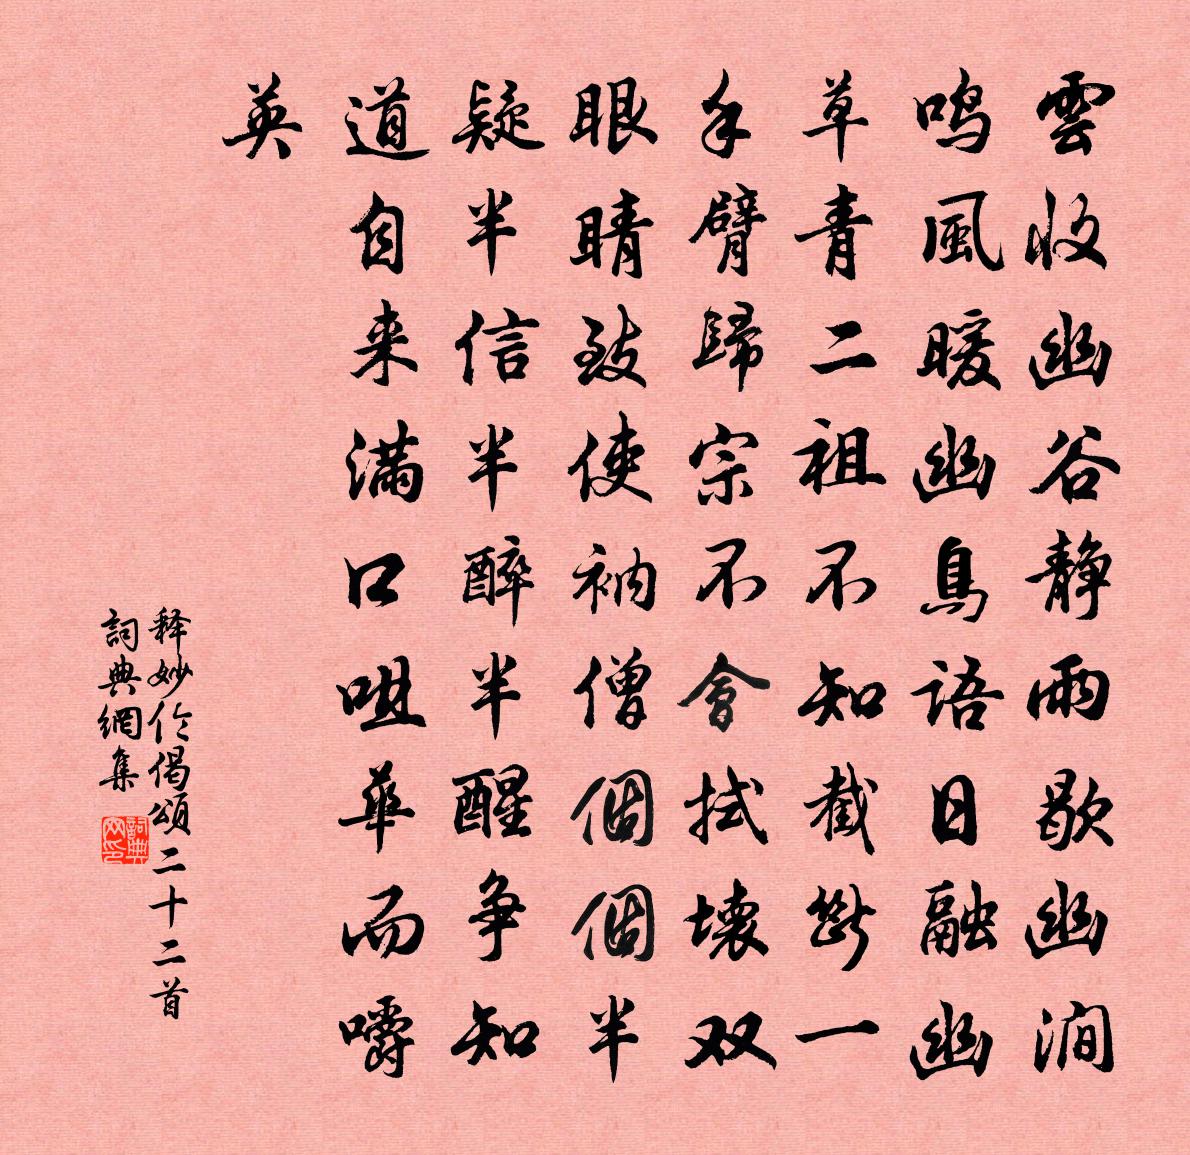 雲收幽谷静雨歇幽澗
鳴風暖幽鳥語日融幽
草青二祖不知截斷一
手臂歸宗不會拭壞双
眼睛致使衲僧個個半
疑半信半醉半醒争知
道自来满口咀華而嚼
英
释妙伦偈頌二十二首
詞典網集
詞典
网印